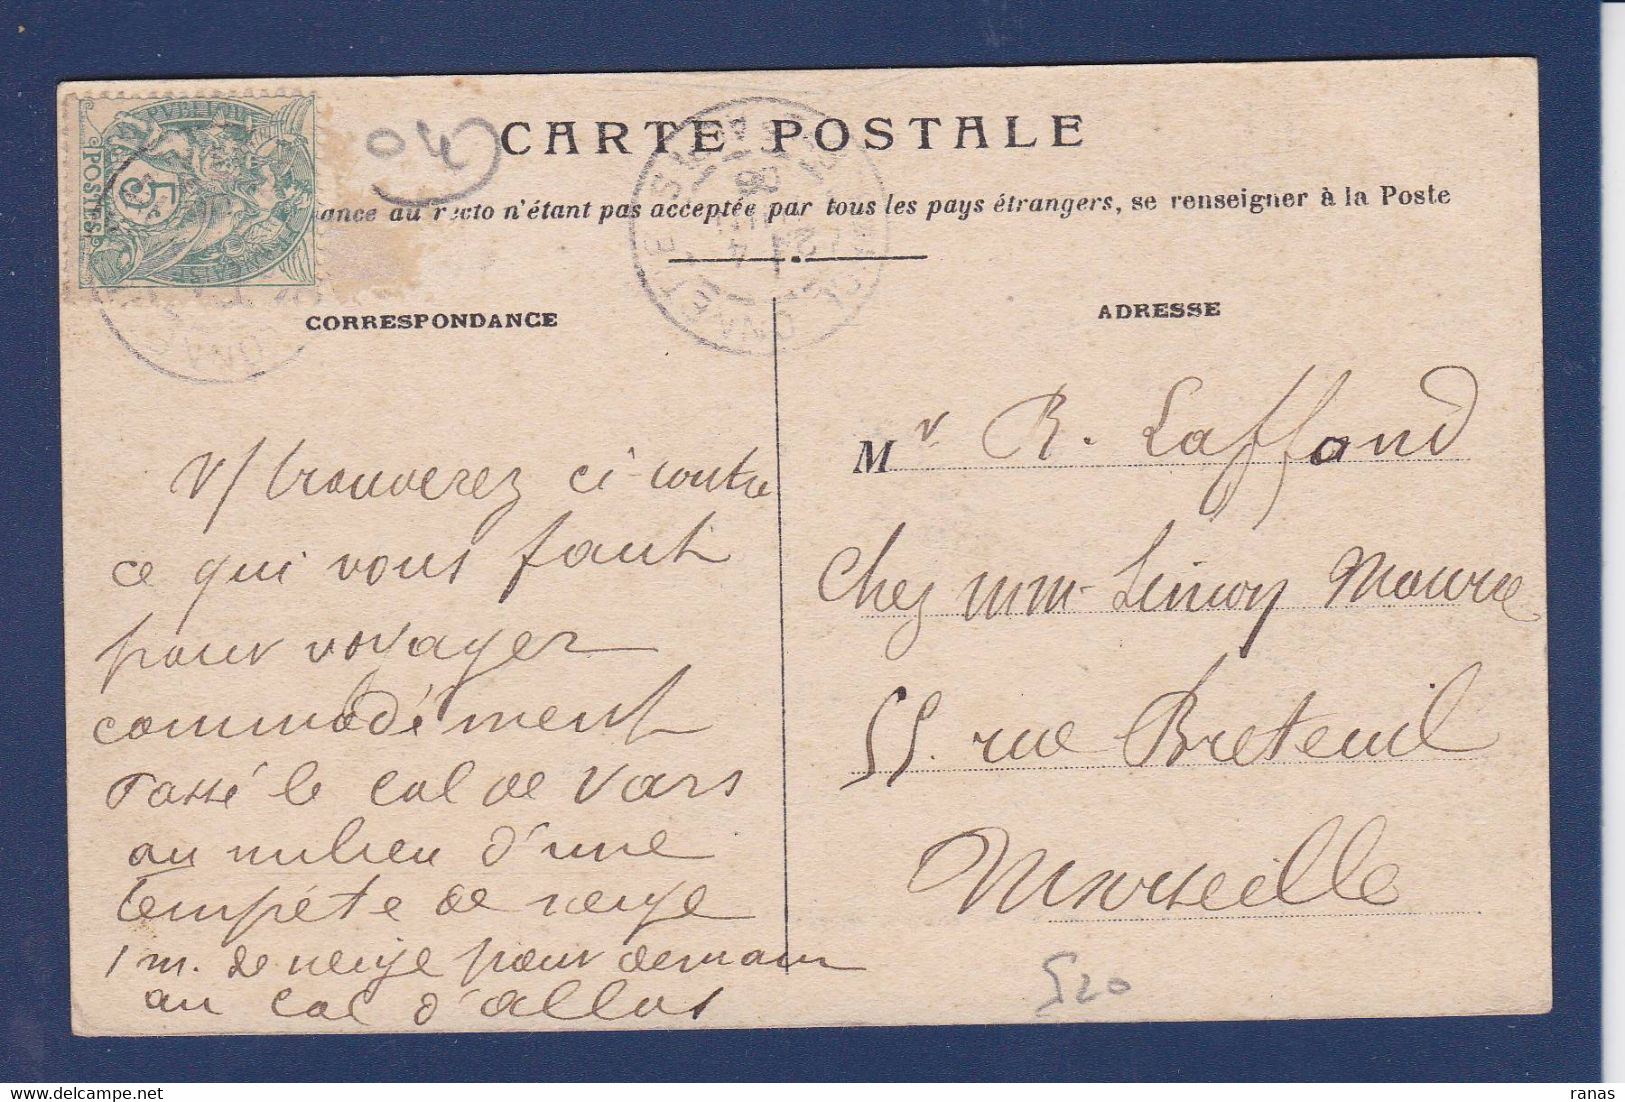 RÉPUBLIQUE FRANÇAISE
POSTES
5
40
CARTE POSTALE
ance au recto n'étant pas acceptée par tous les pays étrangers, se renseigner à la Poste
CORRESPONDANCE
V/ trouverez ci contre
ce qui vous faut
pour voyager
commodément
Passé le col de Vars
au milieu d'une
tempête de neige
1 m. de neige pour demain
au col d'allos
ADRESSE
Mr R. Laffond
Chez MM. Limoy Maurre
55. rue Breteuil
Marseille
520
ranas